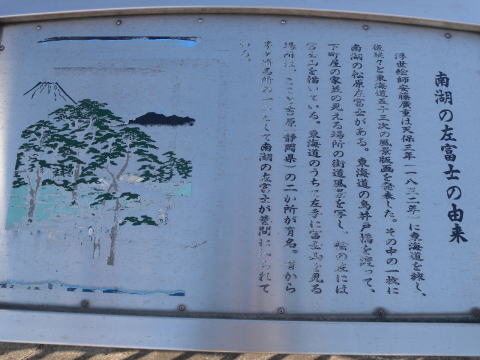 南湖の左富士の由来
浮世絵師安藤廣重は天保三年(一八三二年)に東海道を旅し、
後続々と東海道五十三次の風景版画を発表した。その中の一枚に
南湖の松原左富士がある。東海道の鳥井戸橋を渡って、
下町屋の家並の見える場所の街道風景を写し、絵の左には
富士山を描いている。東海道のうち、左手に富士山を見る
場所は、ここと吉原(静岡県)の二か所が有名。昔から
茅ヶ崎名所の一つとして南湖の左富士が世間に知られて
いる。